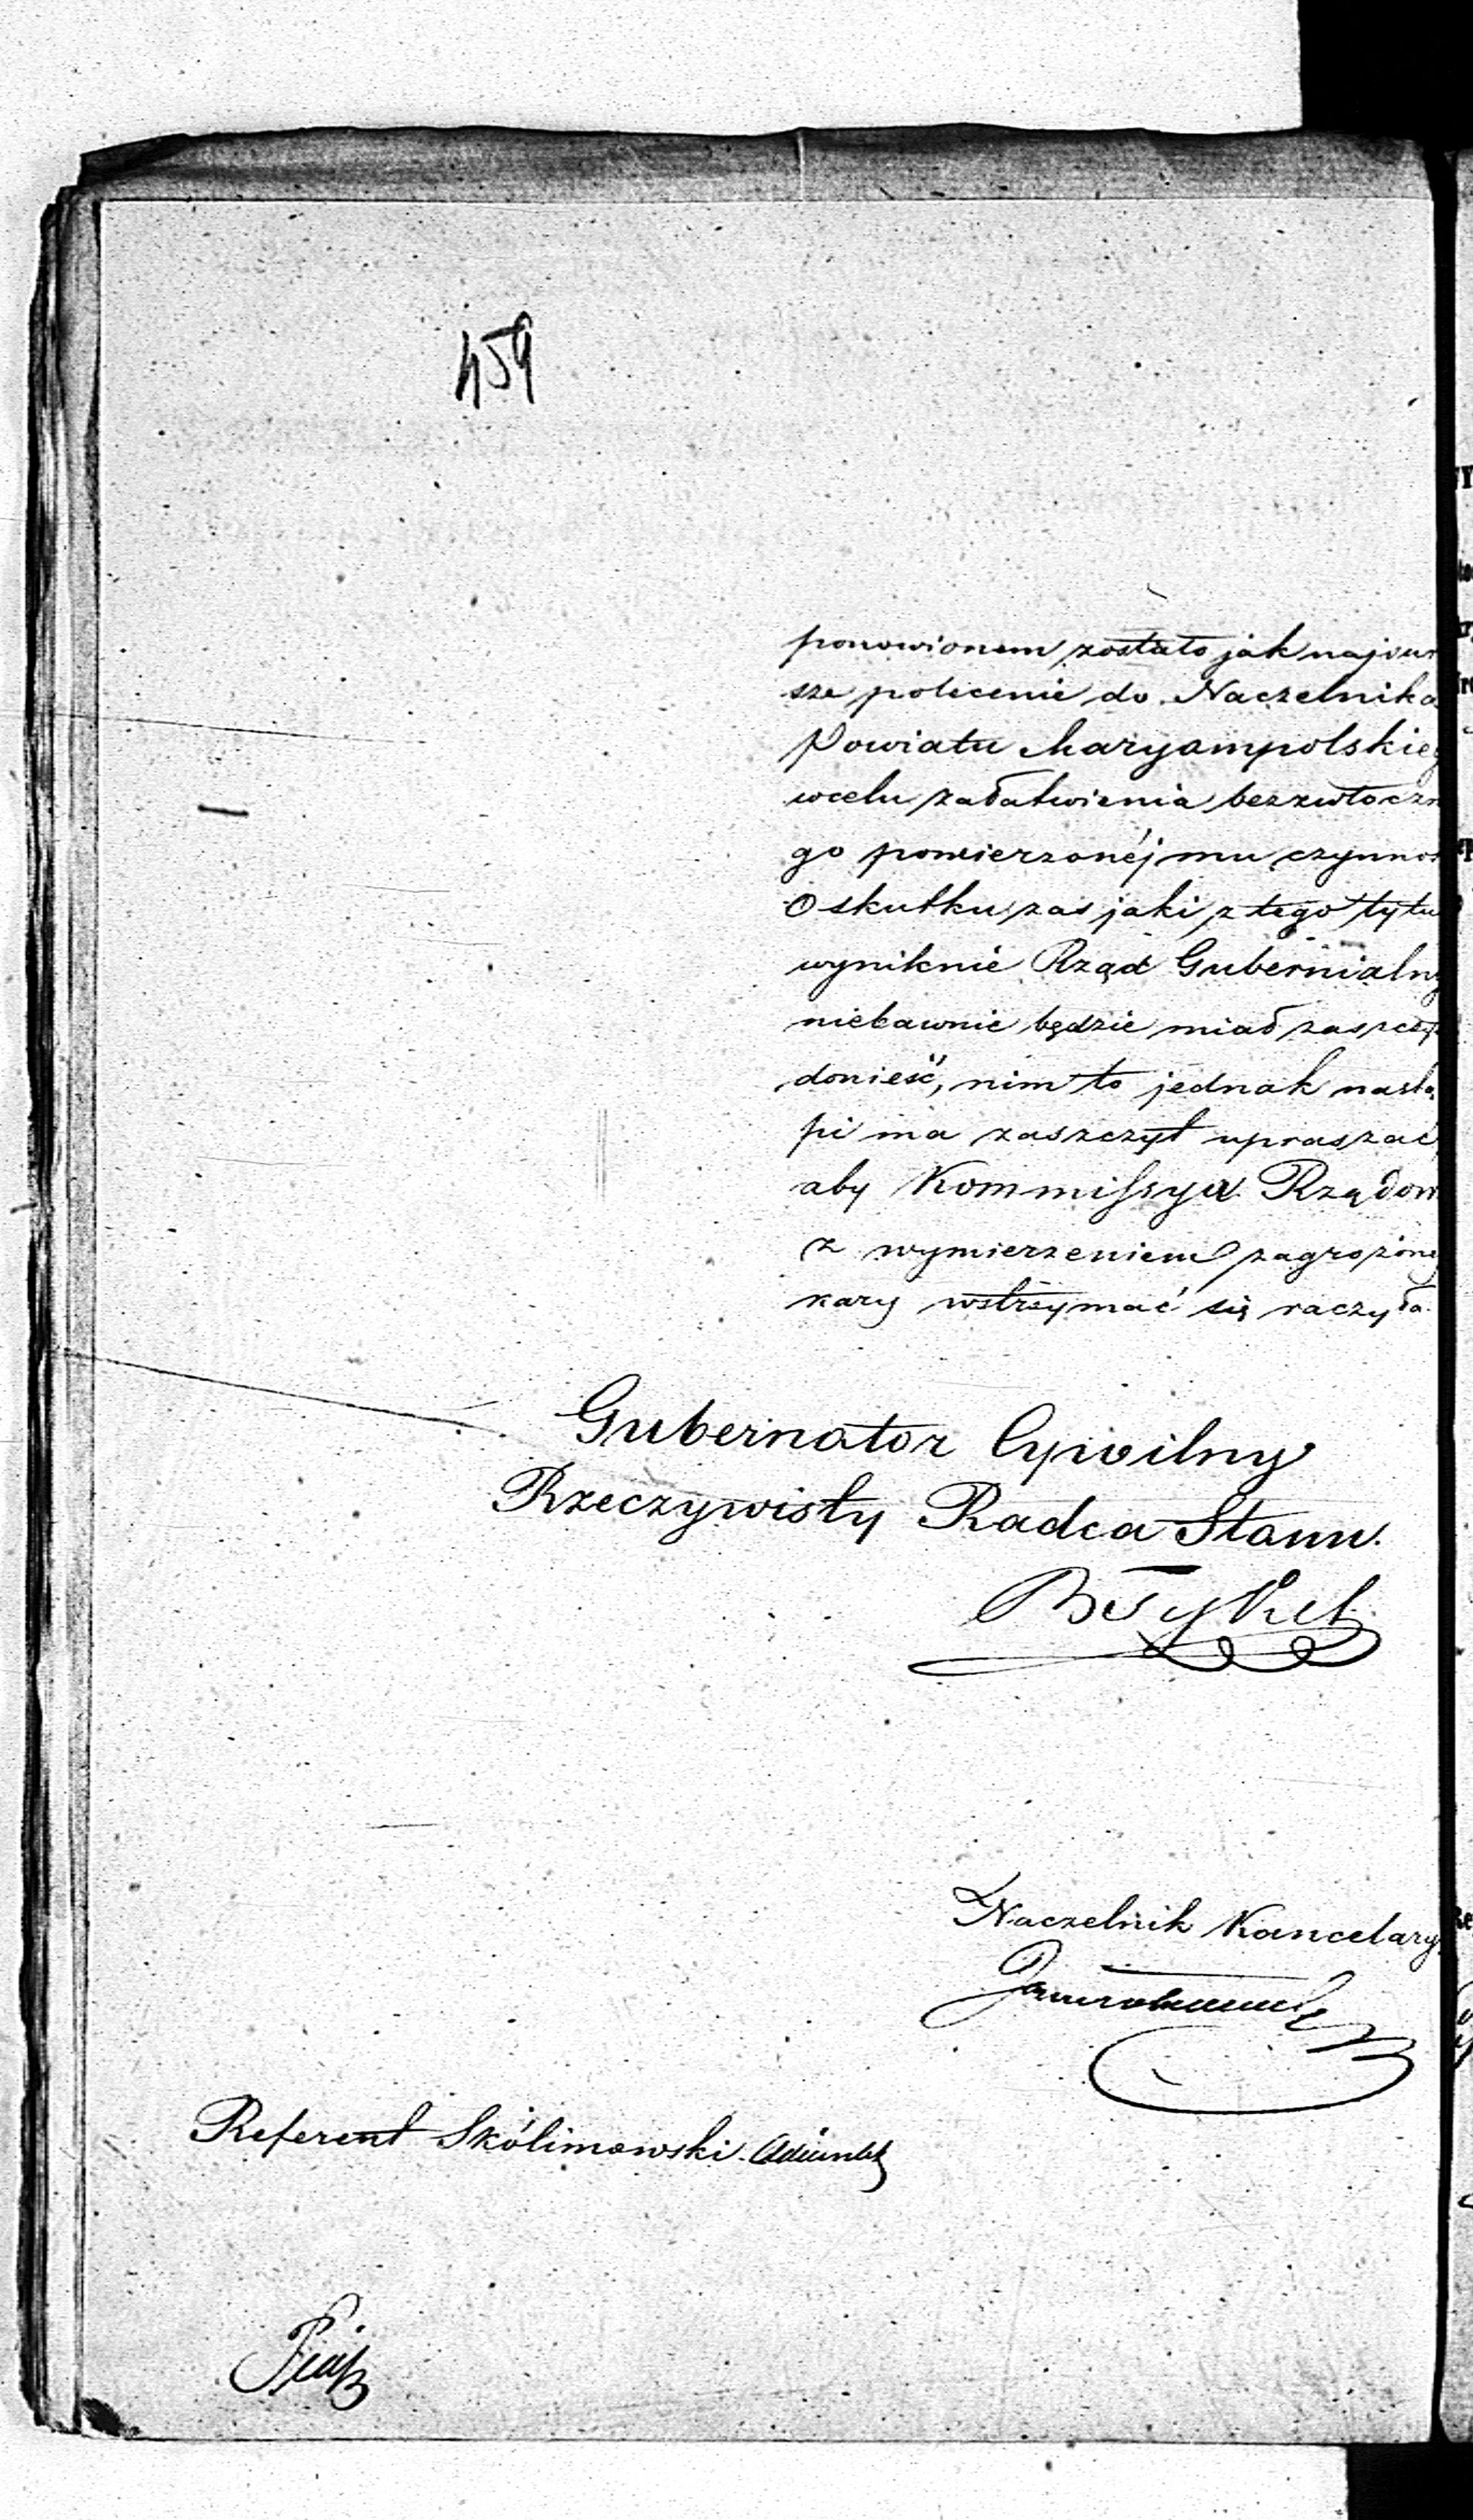 459
ponowionem zostało jak najsur
sze polecenie do Naczelnika
Powiatu Maryampolskieg
wcelu załatwienia bezzwłoczn
go powierzonéj mu czynnoś
O skutku zaś jaki z tego tytu
wyniknie Rząd Gubernialny
niebawnie będzie miał zaszczy
donieść, nim to jednak nastą
pi ma zaszczyt upraszać,
aby Kommissya Rządow
z wymierzeniem zagrożoné
kary wstrzymać się raczyła.
Gubernator Cywilny
Rzeczywisty Radca Stanu.
Naczelnik Kancelary
Referent Skólimowski. Adiunkt